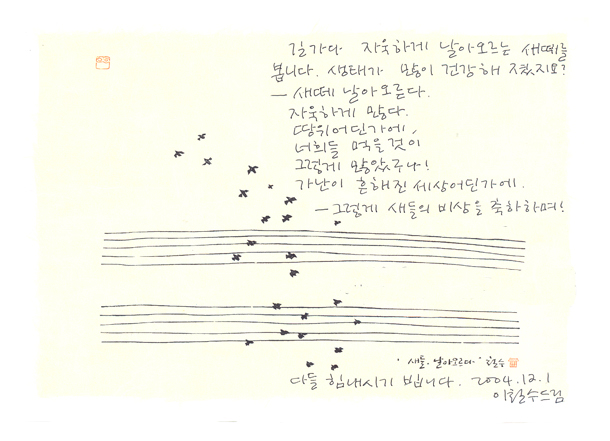 길가다 자욱하게 날아오르는 새떼를
봅니다. 생태가 많이 건강해 졌지요?
— 새떼 날아오른다.
자욱하게 많다.
땅위어딘가에,
너희들 먹을것이
그렇게 많았구나!
가난이 흔해진 세상어딘가에.
— 그렇게 새들의 비상을 축하하며!
'새들·날아오르다·' 철수
다들 힘내시기 빕니다. 2004.12.1
이철수드림